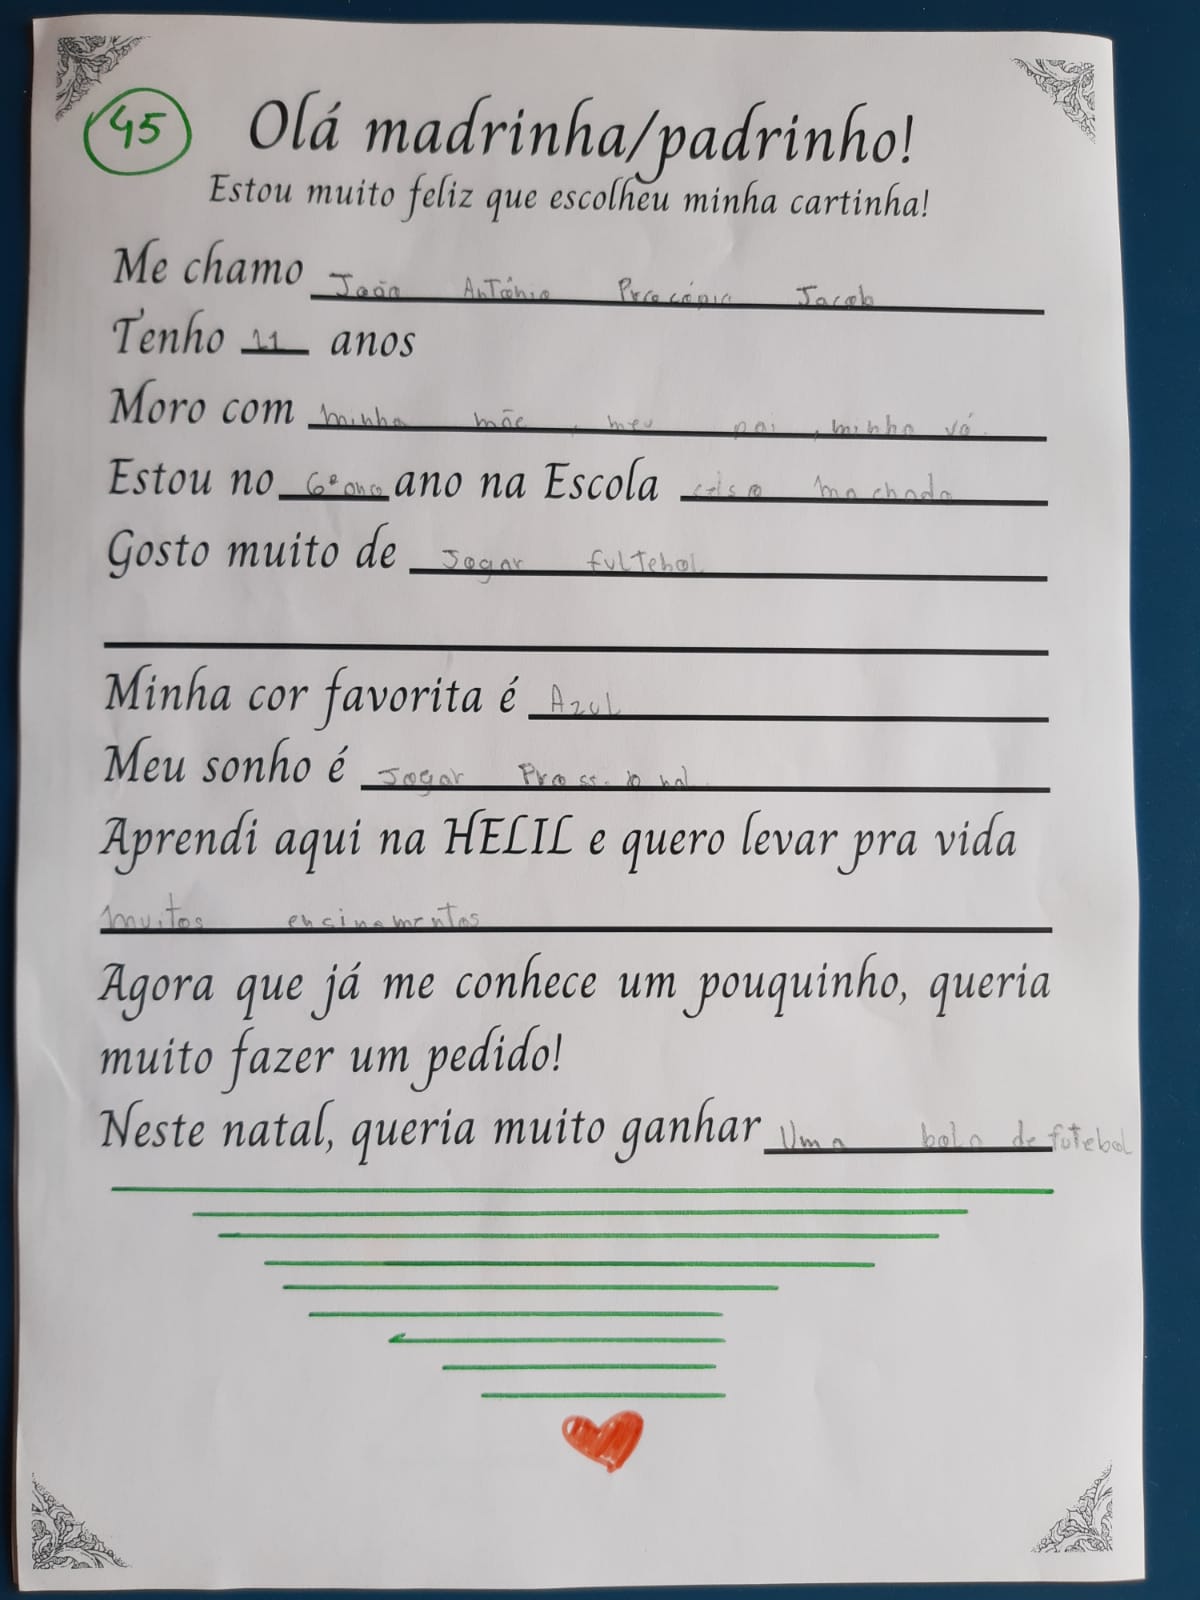 45
Olá madrinha/padrinho!
Estou muito feliz que escolheu minha cartinha!
Me chamo João Antônio Procópio Jacob
Tenho 11 anos
Moro com minha mãe, meu pai, minha vó.
Estou no 6º ano ano na Escola celso machado
Gosto muito de Jogar fultebol
Minha cor favorita é Azul
Meu sonho é Jogar
Aprendi aqui na HELIL e quero levar pra vida
muitos ensinamentos
Agora que já me conhece um pouquinho, queria
muito fazer um pedido!
Neste natal, queria muito ganhar Uma bola de futebol